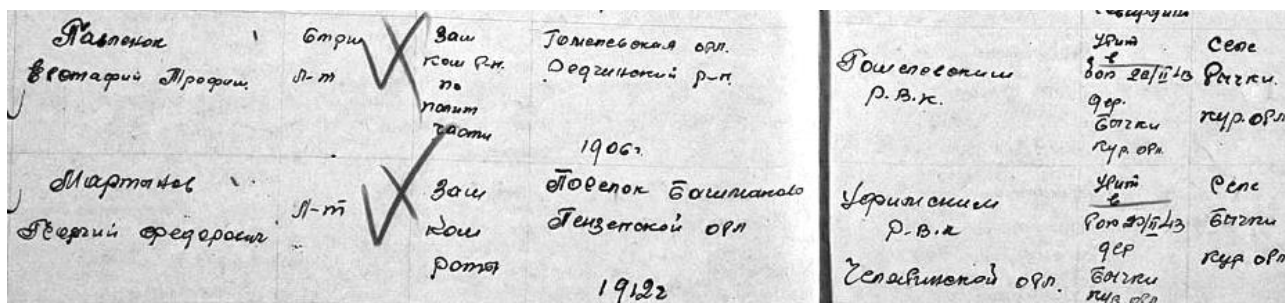 Павленок
Евстафий Трофим.
Стрш
Л-т
Зам
ком р-н.
по
полит
части
Гомелевская обл.
Речинский р-н
1906г.
Гомелевским
Р.В.К.
Убит
в
боп 20/II 43
дер.
Бычки
Кур. обл.
Селе
Бычки.
кур. обл
Мартынов
Георгий Федорович
Л-т
Зам
Ком
роты
Поселок Башмаково
Пензенской обл
1912г
Р.В.К
Челябинской обл.
Убит
в
дер
Бычки
Кур обл
Селе
Бычки
кур обл